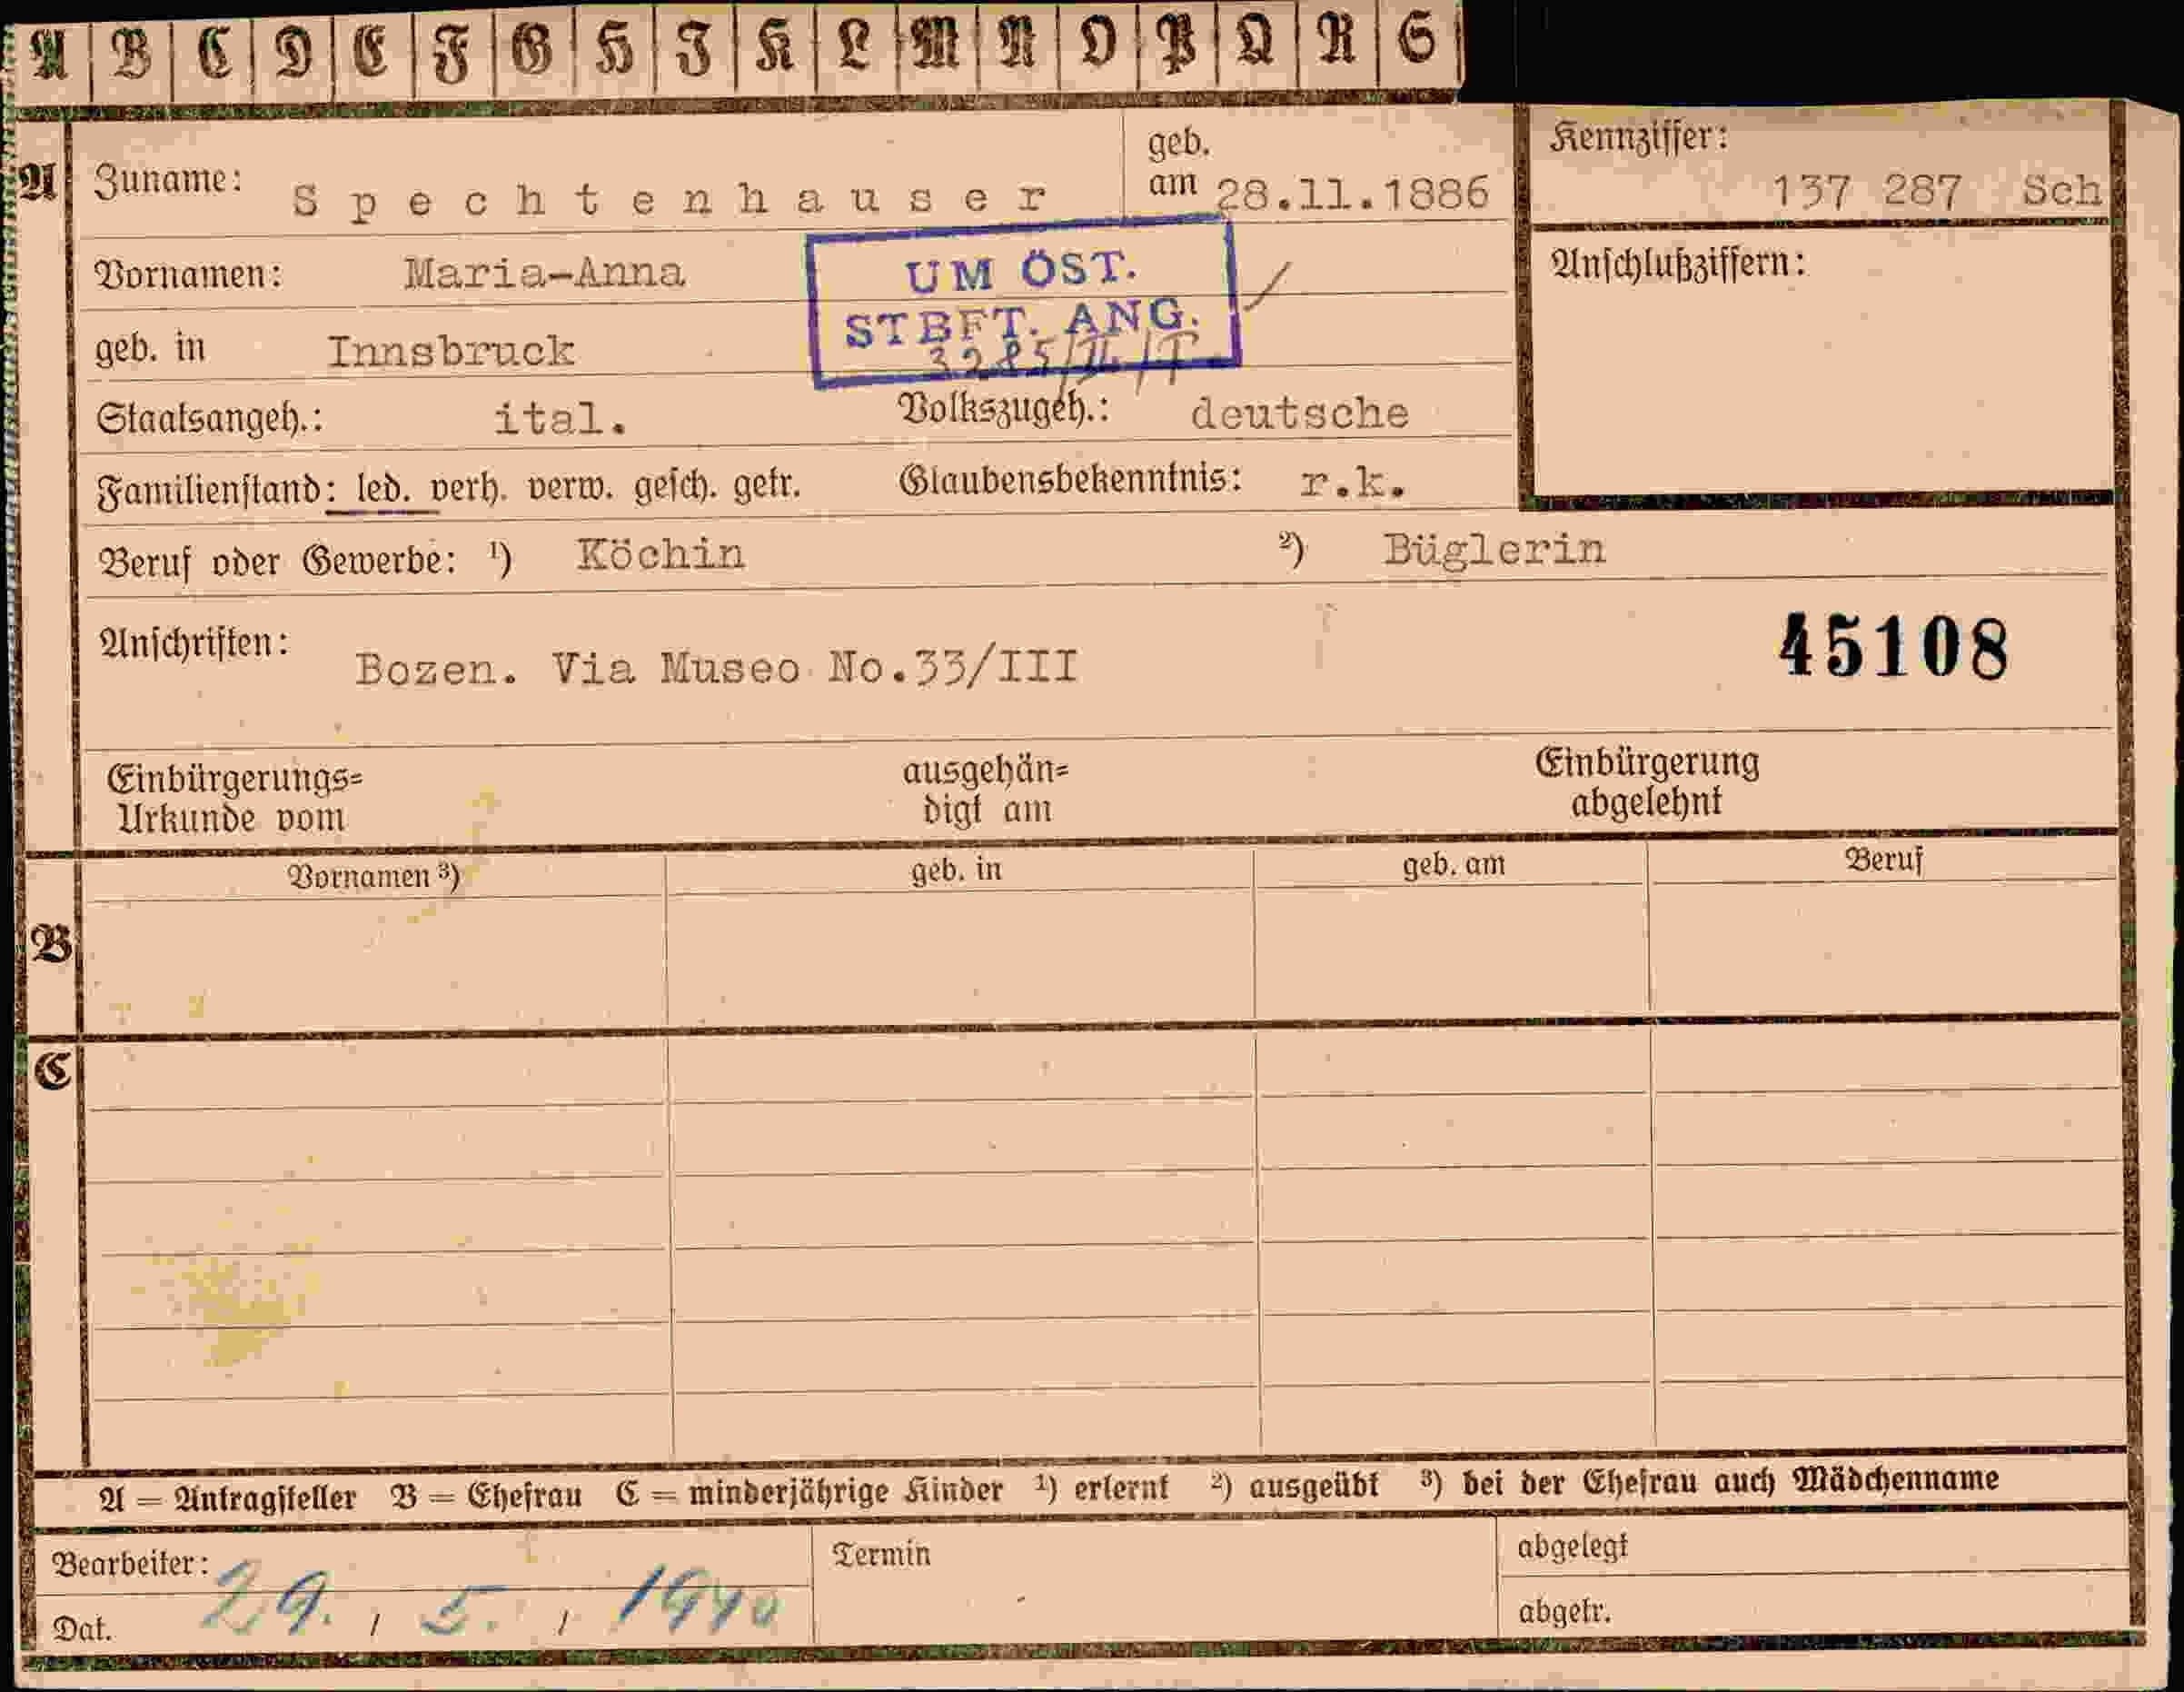 A B C D E F G H I K L M N O P Q R S
A Zuname: Spechtenhauser geb. am 28.11.1886 Kennziffer: 137 287 Sch
Vornamen: Maria-Anna Anschlußziffern:
UM ÖST.
STBFT. ANG.
3285/II/T
geb. in Innsbruck
Staatsangeh.: ital. Volkszugeh.: deutsche
Familienstand: led. verh. verw. gesch. getr. Glaubensbekenntnis: r.k.
Beruf oder Gewerbe: ¹) Köchin ²) Büglerin
Anschriften: Bozen. Via Museo No.33/III 45108
Einbürgerungs= ausgehän= Einbürgerung
Urkunde vom digt am abgelehnt
Vornamen ³) geb. in geb. am Beruf
B
C
A = Antragsteller B = Ehefrau C = minderjährige Kinder ¹) erlernt ²) ausgeübt ³) bei der Ehefrau auch Mädchenname
Bearbeiter: Termin abgelegt
Dat. 29. / 5. / 1940 abgetr.